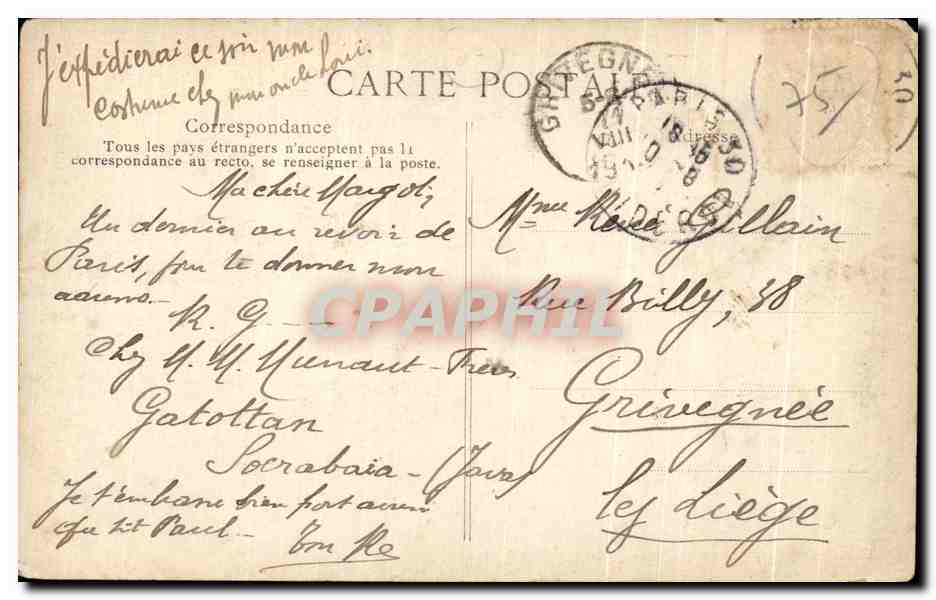 J'expédierai ce soir mon
costume chez mon oncle Loui.
CARTE POSTALE
Correspondance
Tous les pays étrangers n'acceptent pas la
correspondance au recto, se renseigner à la poste.
Adresse
GRIVEGNÉE
PARIS
75
Ma chère Margot,
Un dernier au revoir de
Paris, pour te donner mon
R. G
Chez M. M. Hunaut - Frères
Gatottan
Soerabaia - (Java)
Je t'embrasse bien fort ainsi
que tit Paul -
Ton Re
Mme René Gillain
Rue Billy, 38
Grivegnée
lez Liège
CPAPHIL